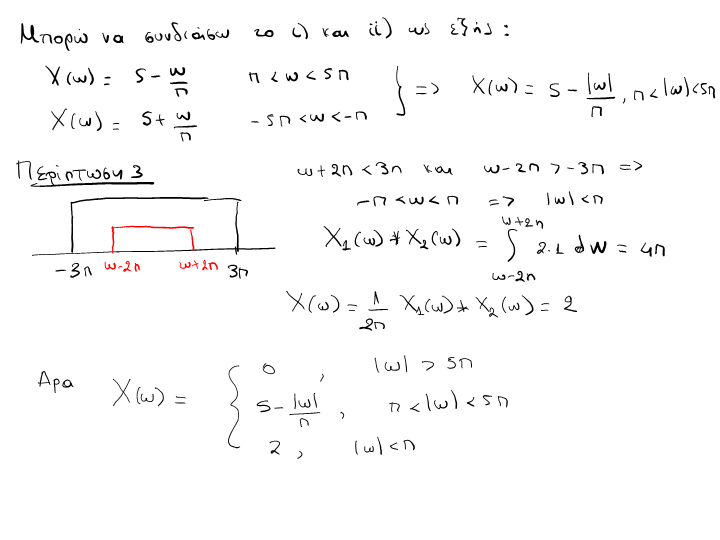 Μπορώ να συνδιάσω το i) και ii) ως εξής:
X(ω) = 5 - ω/π   π < ω < 5π
X(ω) = 5 + ω/π   -5π < ω < -π   } => X(ω) = 5 - |ω|/π, π < |ω| < 5π
Περίπτωση 3
ω+2π < 3π και ω-2π > -3π =>
-π < ω < π => |ω| < π
X₁(ω) * X₂(ω) = ∫_{ω-2π}^{ω+2π} 2·1 dw = 4π
-3π ω-2π ω+2π 3π
X(ω) = 1/2π X₁(ω) * X₂(ω) = 2
Άρα X(ω) = { 0, |ω| > 5π
5 - |ω|/π, π < |ω| < 5π
2, |ω| < π